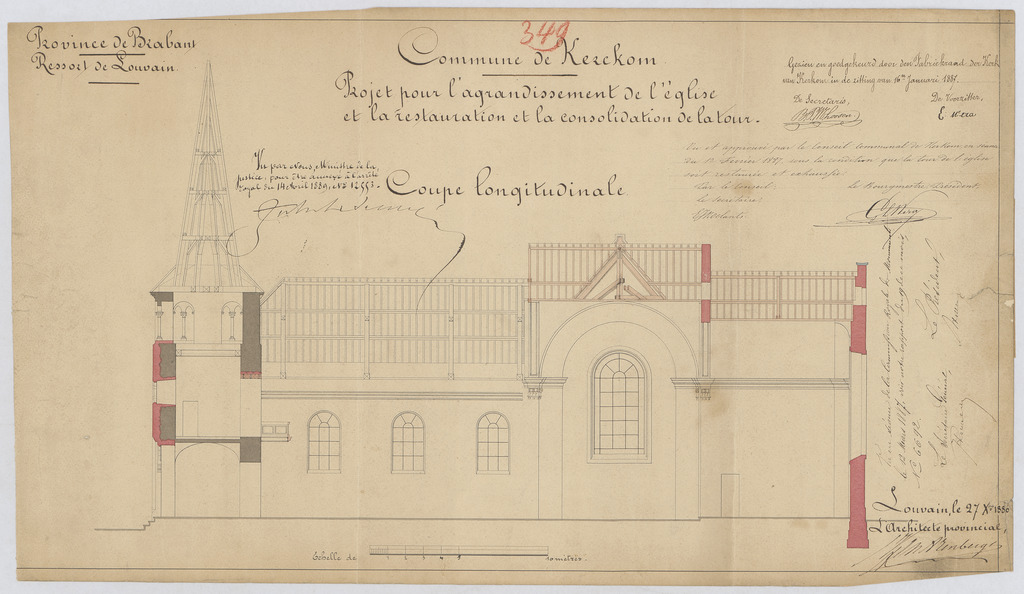 Province de Brabant
Ressort de Louvain
349
Commune de Kerckom
Projet pour l'agrandissement de l'église
et la restauration et la consolidation de la tour.
Gezien en goedgekeurd door den Fabriekraad der Kerk
van Kerkom in de zitting van 16en Januari 1887.
De Secretaris,
De Voorzitter,
Vu et approuvé par le Conseil communal de Kerkom en séance
du 12 Février 1887 sous la condition que la tour de l'église
soit restaurée et exhaussée
Par le Conseil:
le Secrétaire,
le Bourgmestre Président,
Vu par Nous, Ministre de la
justice, pour être annexé à l'arrêté
royal du 14 Avril 1889, No 12553.
Coupe longitudinale
la Commission royale des Monuments
le 12 Mars 1887. rapport
No 6092.
Le Secrétaire Général,
Le Président,
Echelle de
1 2 3 4 5
10 mètres.
Louvain, le 27 Xbre 1886
L'Architecte provincial,